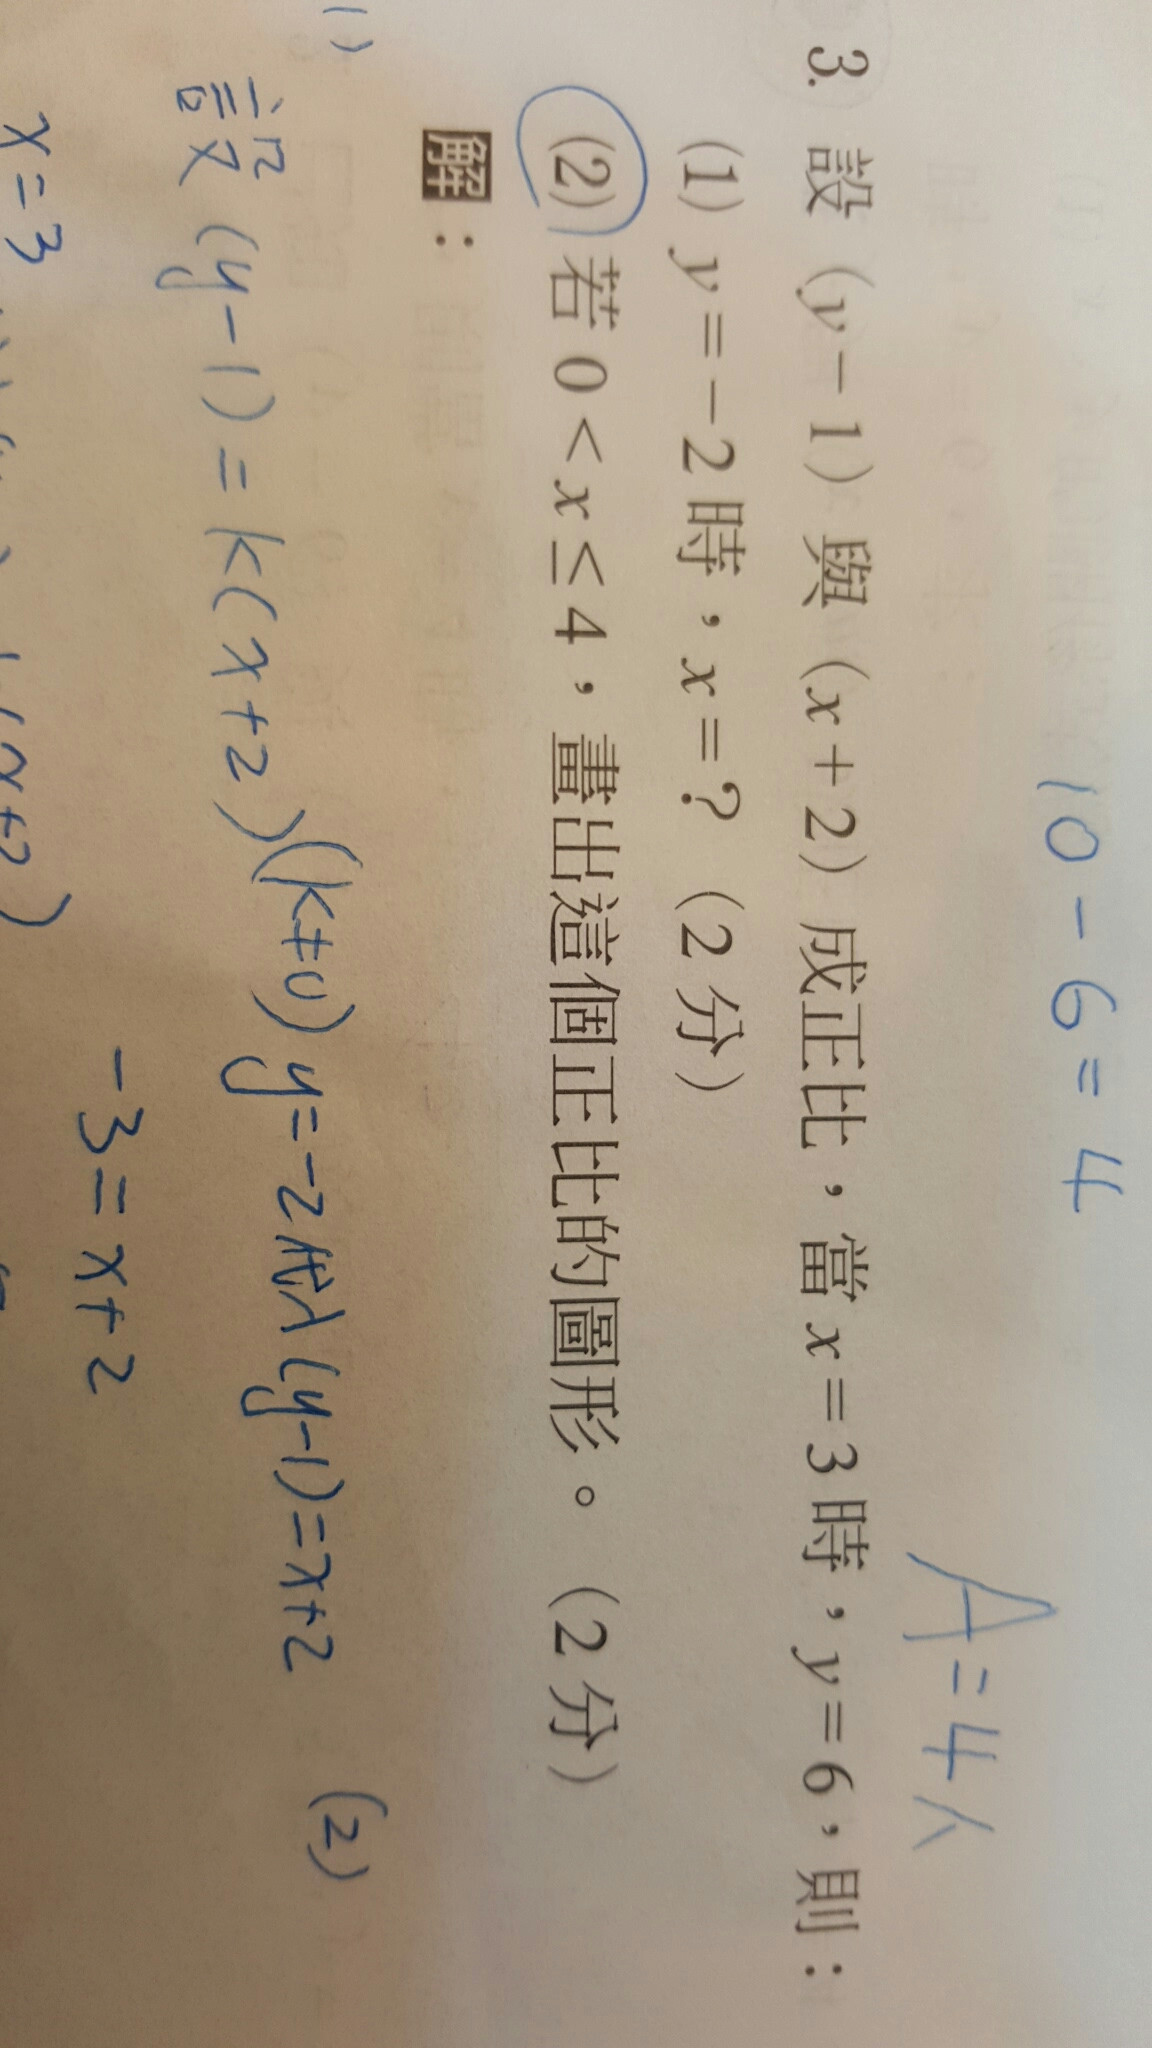 10-6=4
A=4人
3. 設(y-1)與(x+2)成正比，當x=3時，y=6，則：
(1) y=-2時，x=?（2分）
(2) 若0<x≤4，畫出這個正比的圖形。（2分）
解：
1)
(2)
設(y-1)=k(x+2)(k≠0) y=-2代入(y-1)=x+2
-3=x+2
x=3
(x+2)